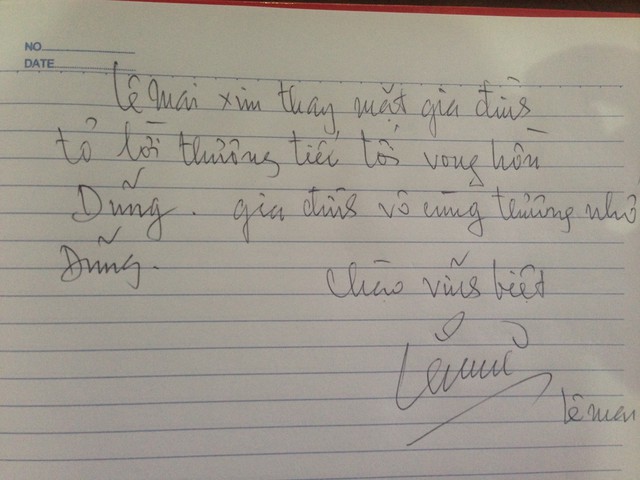 NO
DATE
Lê Mai xin thay mặt gia đình
tỏ lời thương tiếc tới vong hồn
Dũng. gia đình vô cùng thương nhớ
Dũng.
Chào vĩnh biệt
Lê mai